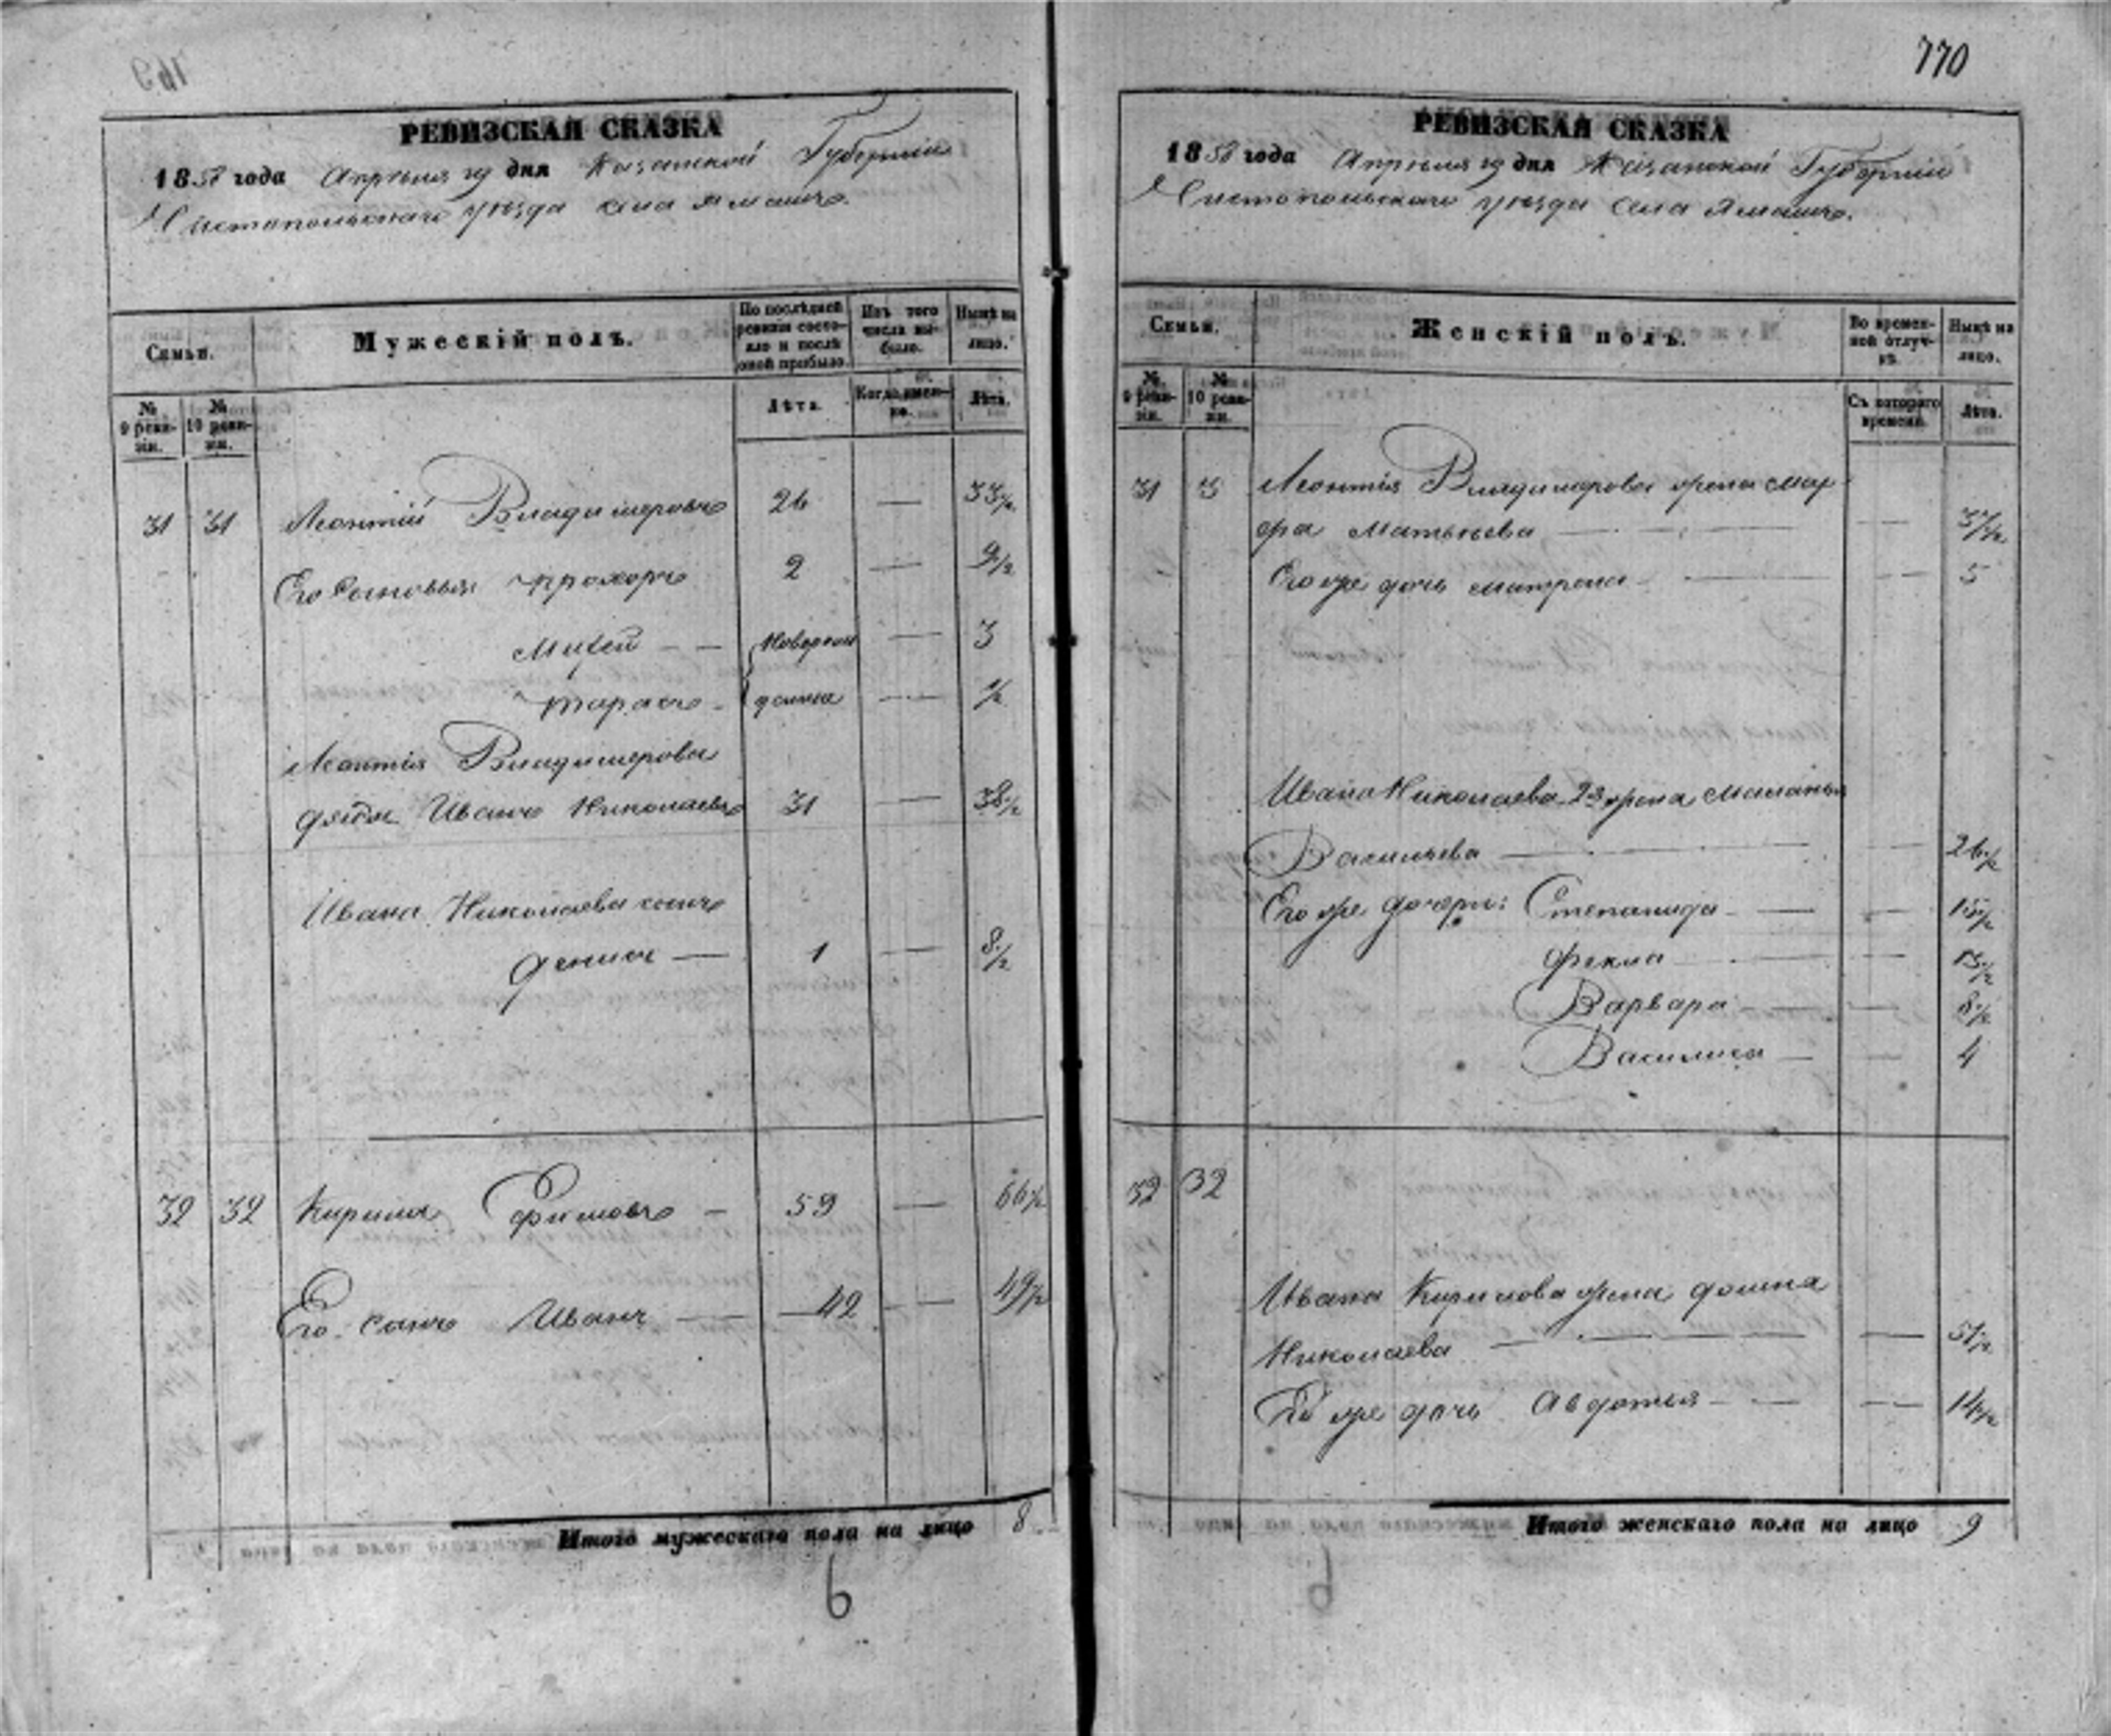 РЕВИЗСКАЯ СКАЗКА
1858 года Апреля дня Казанской Губернии
Чистопольскаго уезда села Ямашъ.
Семьи.
Мужескій полъ.
По послѣдней ревизіи состояло и послѣ оной прибыло.
Изъ того числа выбыло.
Нынѣ на лицо.
№ 9 ревизіи.
№ 10 ревизіи.
Лѣта.
Когда именно.
Лѣта.
31 31 Леонтій Владимеровъ 26 — 33 1/2
Его Сыновья Прохоръ 2 — 9 1/2
Мифей — — Новорож — 3
Тарасъ — денные — 1/2
Леонтія Владимерова
дядя Иванъ Николаевъ 31 — 38 1/2
Ивана Николаева сынъ
Денис — 1 — 8 1/2
32 32 Кирила Фимовъ — 59 — 66 1/2
Его сынъ Иванъ — 42 — 49 1/2
Итого мужескаго пола на лицо 8
6
770
РЕВИЗСКАЯ СКАЗКА
1858 года Апреля дня Казанской Губерніи
Чистопольскаго уезда села Ямашъ.
Семьи.
Женскій полъ.
Во временной отлучкѣ.
Нынѣ на лицо.
№ 9 ревизіи.
№ 10 ревизіи.
Съ котораго времени.
Лѣта.
31 3 Леонтія Владимерова жена Мар
фа Матвеева — — 37 1/2
Его же дочь Матрена — — 5
Ивана Николаева 2я жена Маланья
Васильева — — 26 1/2
Его же дочери: Степанида — — 15 1/2
Фекла — — 13 1/2
Варвара — — 8 1/2
Василиса — — 4
32 32
Ивана Кирилова жена Домна
Николаева — — 51 1/2
Его же дочь Авдотья — — 14 1/2
Итого женскаго пола на лицо 9